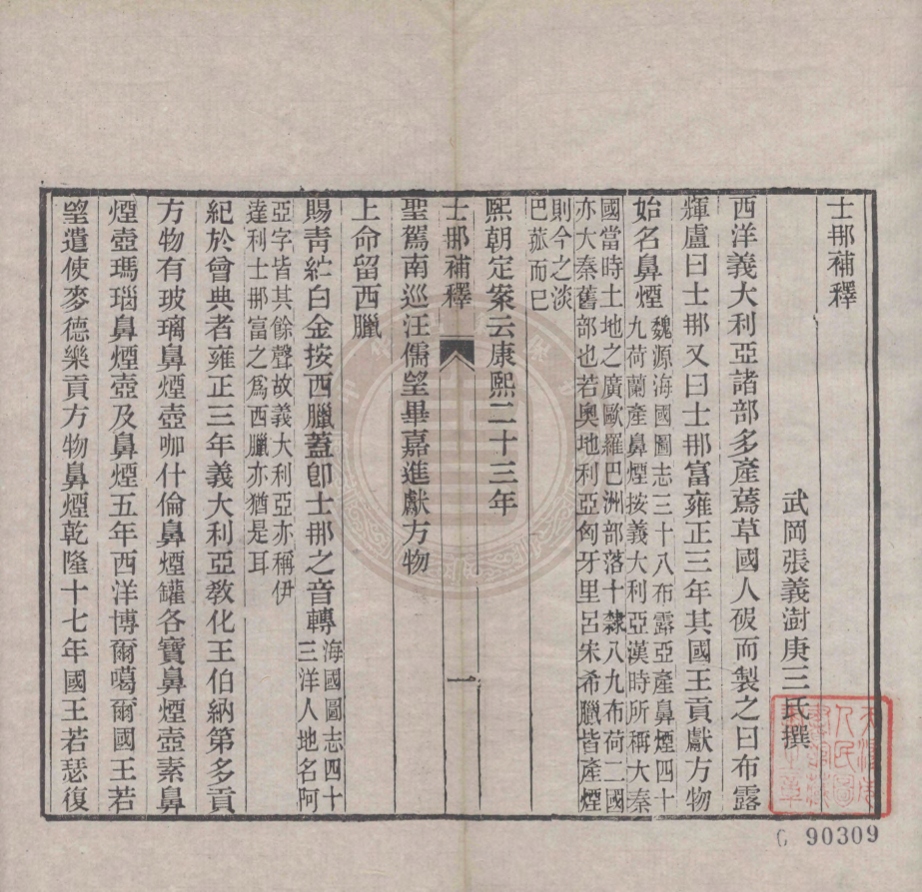 士那補釋
武岡張義澍庚三氏撰
西洋義大利亞諸部多產蔫草國人破而製之曰布露
輝盧曰士那又曰士那富雍正三年其國王貢獻方物
始名鼻煙魏源海國圖志三十八布露亞產鼻煙四十
九荷蘭產鼻煙按義大利亞漢時所稱大秦
國當時土地之廣歐羅巴洲部落十隸八九布荷二國
亦大秦舊部也若奧地利亞匈牙里呂宋希臘皆產煙
則今之淡
巴菰而已
熙朝定案云康熙二十三年
士那補釋
一
聖駕南巡汪儒望畢嘉進獻方物
上命留西臘
賜青紵白金按西臘蓋卽士那之音轉海國圖志四十
三洋人地名阿
亞字皆其餘聲故義大利亞亦稱伊
達利士那富之爲西臘亦猶是耳
紀於曾典者雍正三年義大利亞敎化王伯納第多貢
方物有玻璃鼻煙壺咖什倫鼻煙罐各寶鼻煙壺素鼻
煙壺瑪瑙鼻煙壺及鼻煙五年西洋博爾噶爾國王若
望遣使麥德樂貢方物鼻煙乾隆十七年國王若瑟復
90309